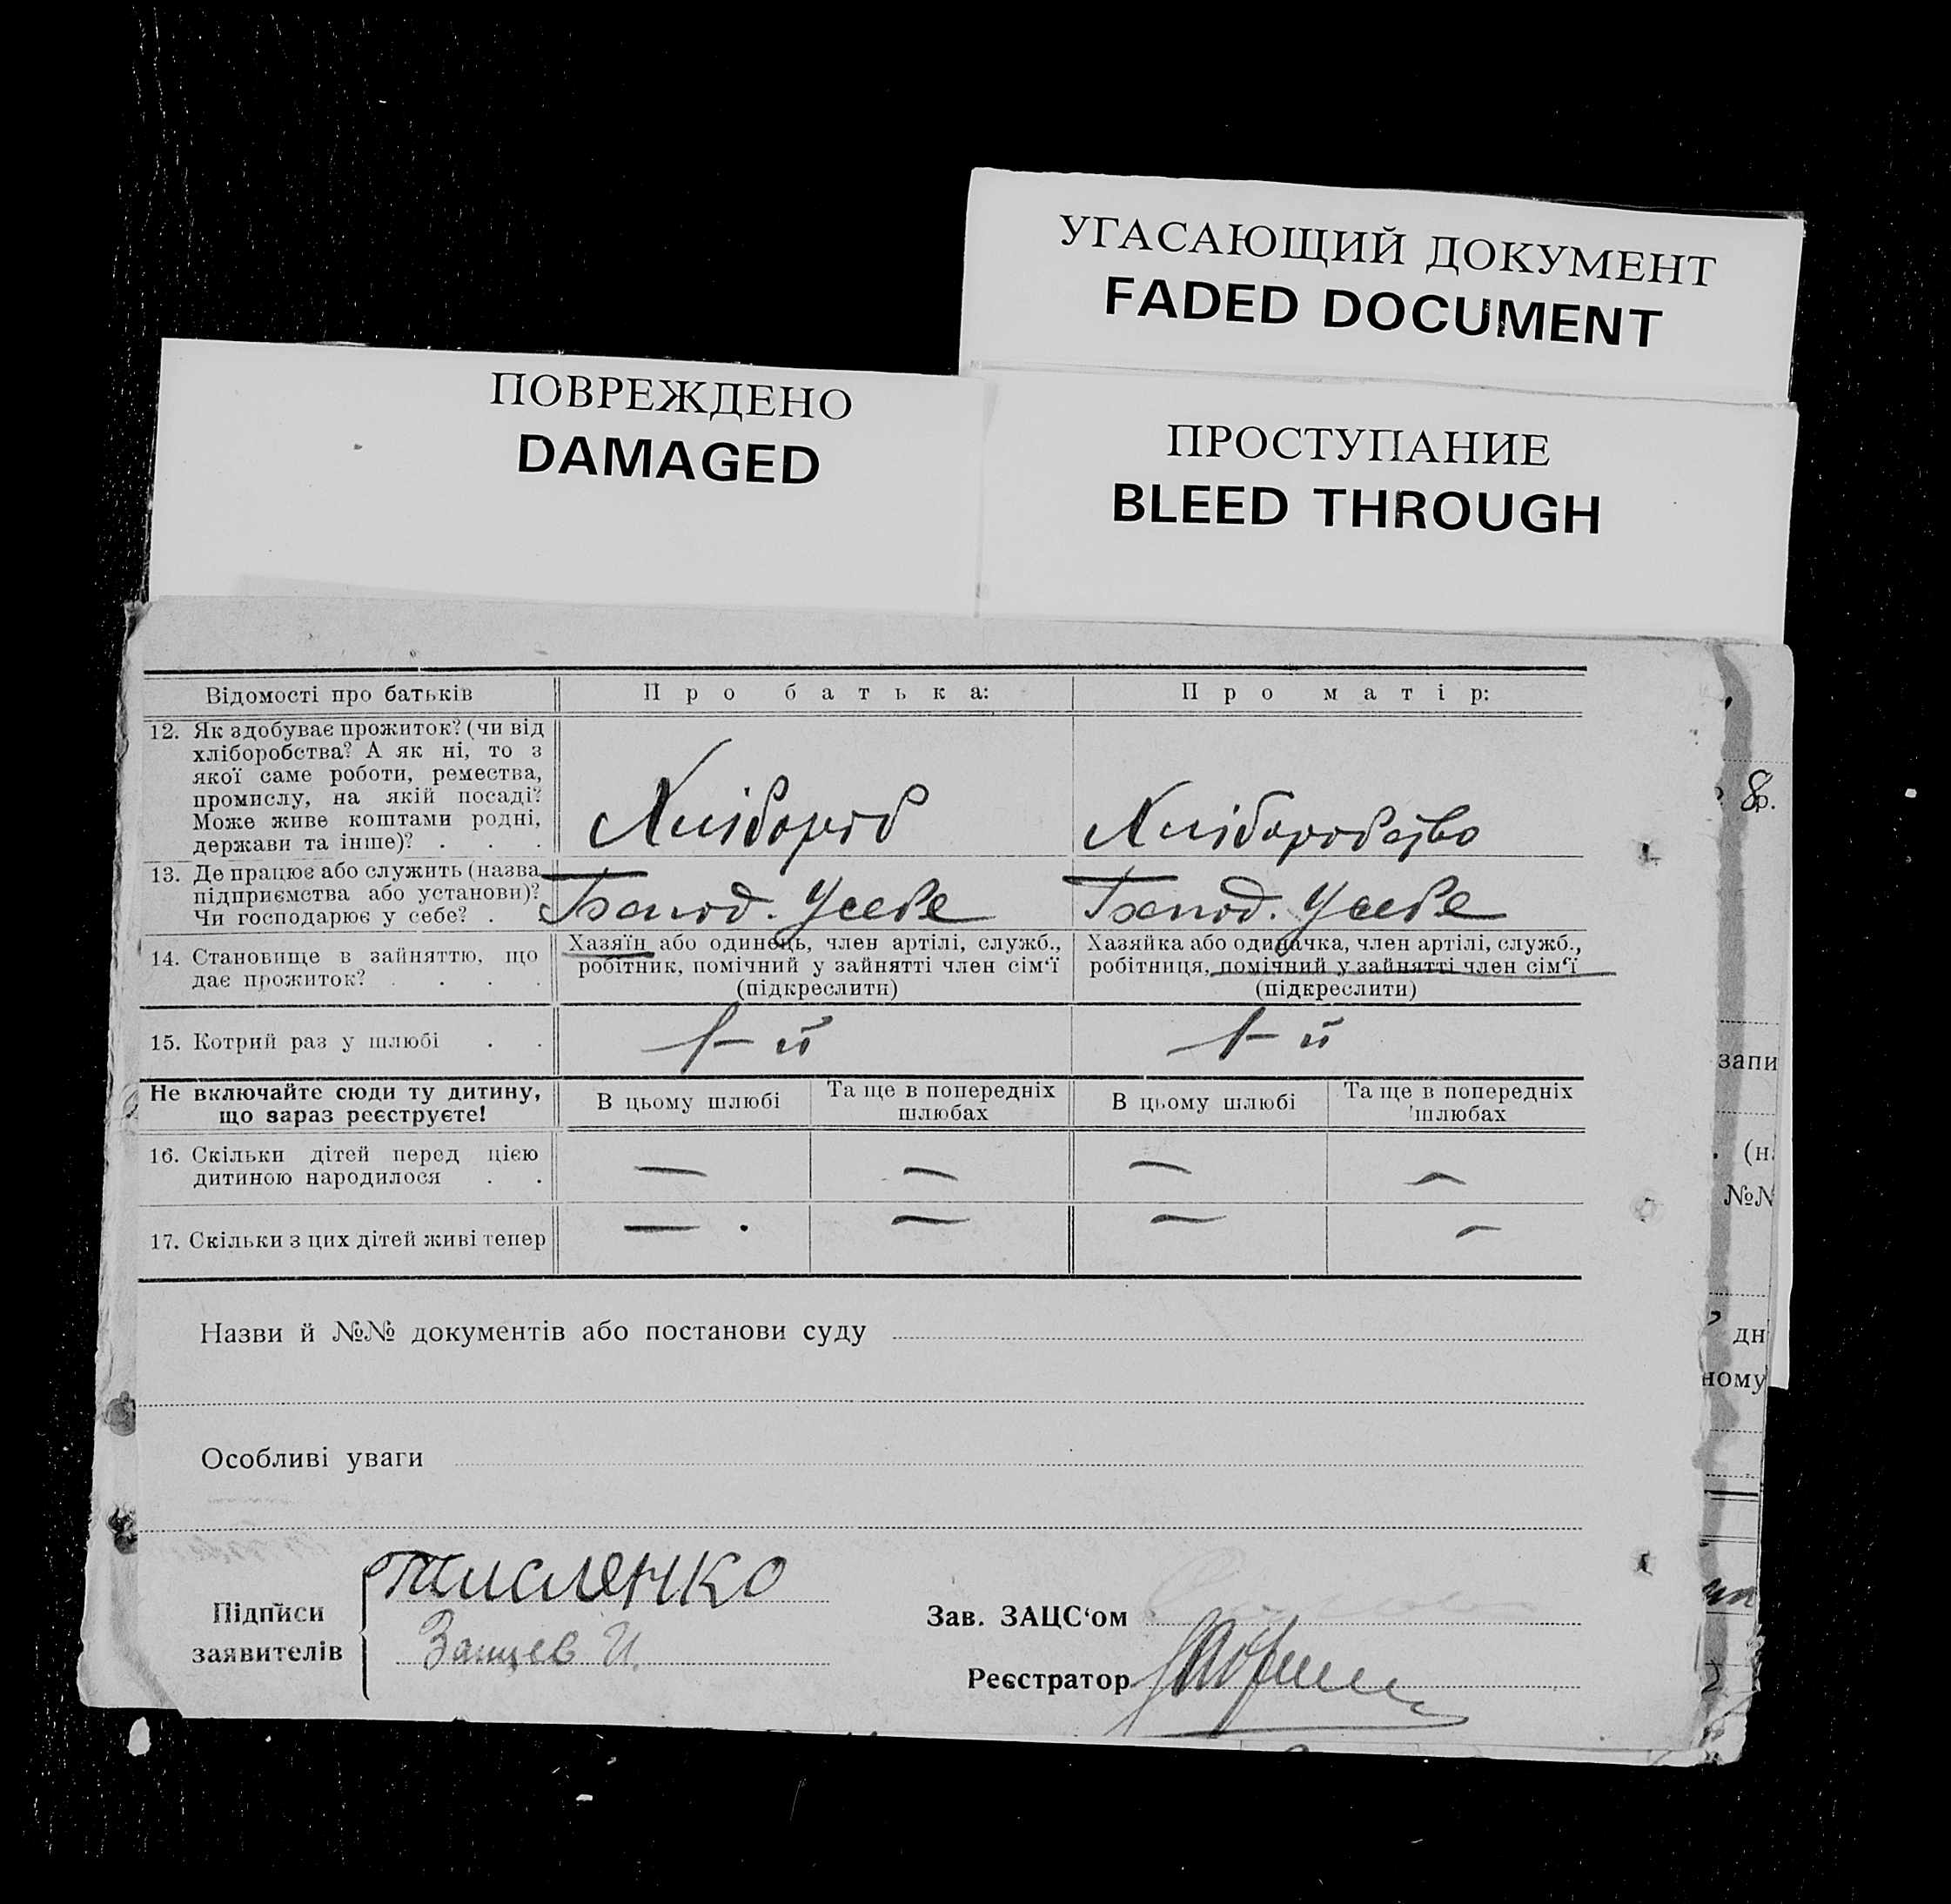 УГАСАЮЩИЙ ДОКУМЕНТ
FADED DOCUMENT
ПОВРЕЖДЕНО
DAMAGED
ПРОСТУПАНИЕ
BLEED THROUGH
Відомості про батьків
Про батька:
Про матір:
12. Як здобуває прожиток? (чи від
хліборобства? А як ні, то з
якої саме роботи, ремества,
промислу, на якій посаді?
Може живе коштами родні,
держави та інше)? . . .
Хлібороб
Хліборобство
13. Де працює або служить (назва
підприємства або установи)?
Чи господарює у себе? .
Господ. Усебе
Господ. Усебе
14. Становище в зайняттю, що
дає прожиток? . . . .
Хазяїн або одинець, член артілі, служб.,
робітник, помічний у зайнятті член сім'ї
(підкреслити)
Хазяйка або одиначка, член артілі, служб.,
робітниця, помічний у зайнятті член сім'ї
(підкреслити)
15. Котрий раз у шлюбі . .
1-й
1-й
Не включайте сюди ту дитину,
що зараз реєструєте!
В цьому шлюбі
Та ще в попередніх
шлюбах
В цьому шлюбі
Та ще в попередніх
шлюбах
16. Скільки дітей перед цією
дитиною народилося . .
— — — —
17. Скільки з цих дітей живі тепер
— — — —
Назви й №№ документів або постанови суду
Особливі уваги
Підписи
заявителів
Тисленко
Зайцев И.
Зав. ЗАЦС'ом
Реєстратор
8
р.
запи
(н
№№
дн
ному